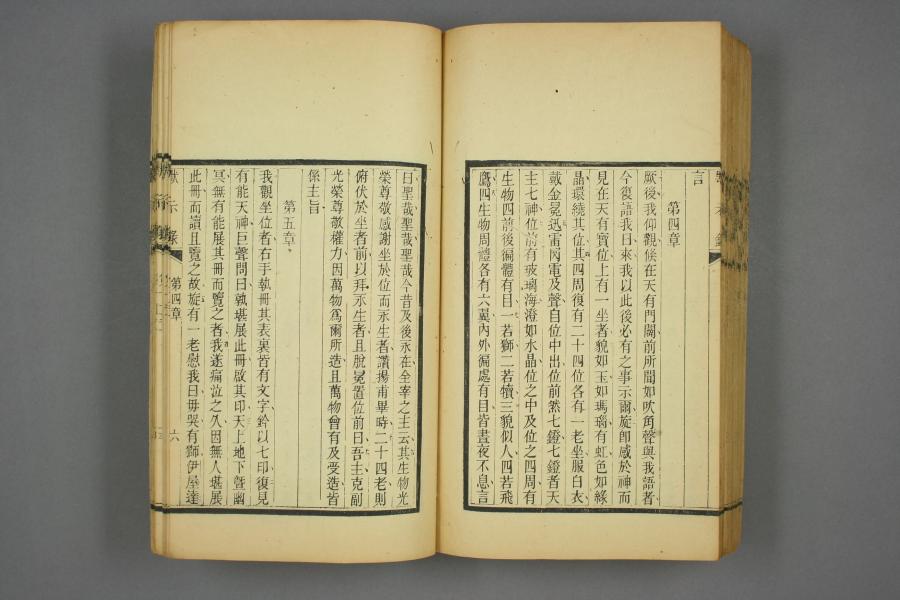 言
第四章
厥後我仰觀候在天有門闢前所聞如吹角聲與我語者
今復語我曰來我以此後必有之事示爾旋卽感於神而
見在天有寶位上有一坐者貌如玉如瑪瑙有虹色如綠
晶環繞其位其四周復有二十四位各有一老坐服白衣
戴金冕迅雷閃電及聲自位中出位前然七鐙七鐙者天
主七神位前有玻璃海澄如水晶位之中及位之四周有
生物四前後徧體有目一若獅二若犢三貌似人四若飛
鷹四生物周體各有六翼內外徧處有目皆晝夜不息言
曰聖哉聖哉聖哉今昔及後永在全宰之主云其生物光
榮尊敬感謝坐於位而永生者讚揚甫畢時二十四老則
俯伏於坐者前以拜永生者且脫冕置位前曰吾主克副
光榮尊敬權力因萬物爲爾所造且萬物曾有及受造皆
係主旨
第五章
我觀坐位者右手執冊其表裏皆有文字鈐以七印復見
有能天神巨聲問曰孰堪展此冊啟其印天上地下曁幽
冥無有能展其冊而覽之者我遂痛泣之久因無人堪展
此冊而讀且覽之故旋有一老慰我曰毋哭有獅伊屋達
默示錄
第四章
六